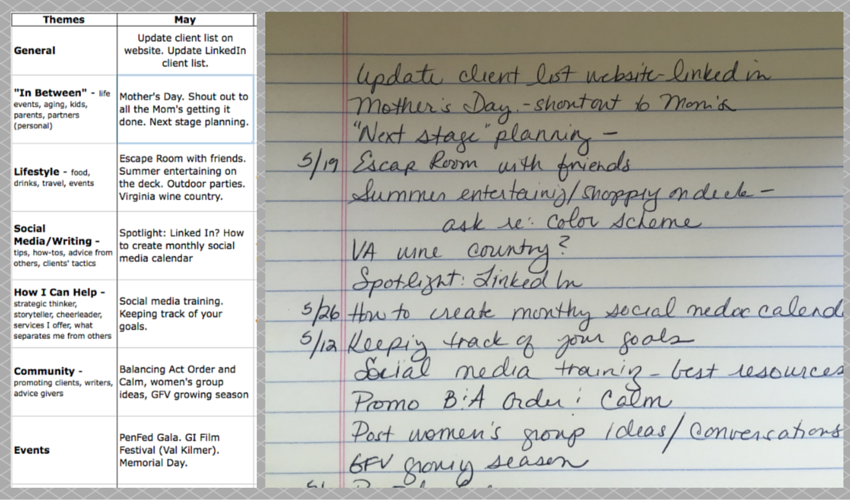 Themes May
General
Update client list on
website. Update LinkedIn
client list.
"In Between" - life
events, aging, kids,
parents, partners
(personal)
Mother's Day. Shout out to
all the Mom's getting it
done. Next stage planning.
Lifestyle - food,
drinks, travel, events
Escape Room with friends.
Summer entertaining on
the deck. Outdoor parties.
Virginia wine country.
Social
Media/Writing -
tips, how-tos, advice from
others, clients' tactics
Spotlight: Linked In? How
to create monthly social
media calendar
How I Can Help -
strategic thinker,
storyteller, cheerleader,
services I offer, what
separates me from others
Social media training.
Keeping track of your
goals.
Community -
promoting clients, writers,
advice givers
Balancing Act Order and
Calm, women's group
ideas, GFV growing season
Events
PenFed Gala. GI Film
Festival (Val Kilmer).
Memorial Day.
Update client list website-linked in
Mother's Day - shoutout to Mom's
"Next stage" planning -
5/19 Escap Room with friends
Summer entertaing/shoppig on deck -
ask re: color scheme
VA wine country?
Spotlight: Linked In
5/26 How to create monthy social media calend
5/12 Keepig track of your goals
Social media training - best resources
Promo B:A Order : Calm
Post women's group ideas/conversations
GFV growig season